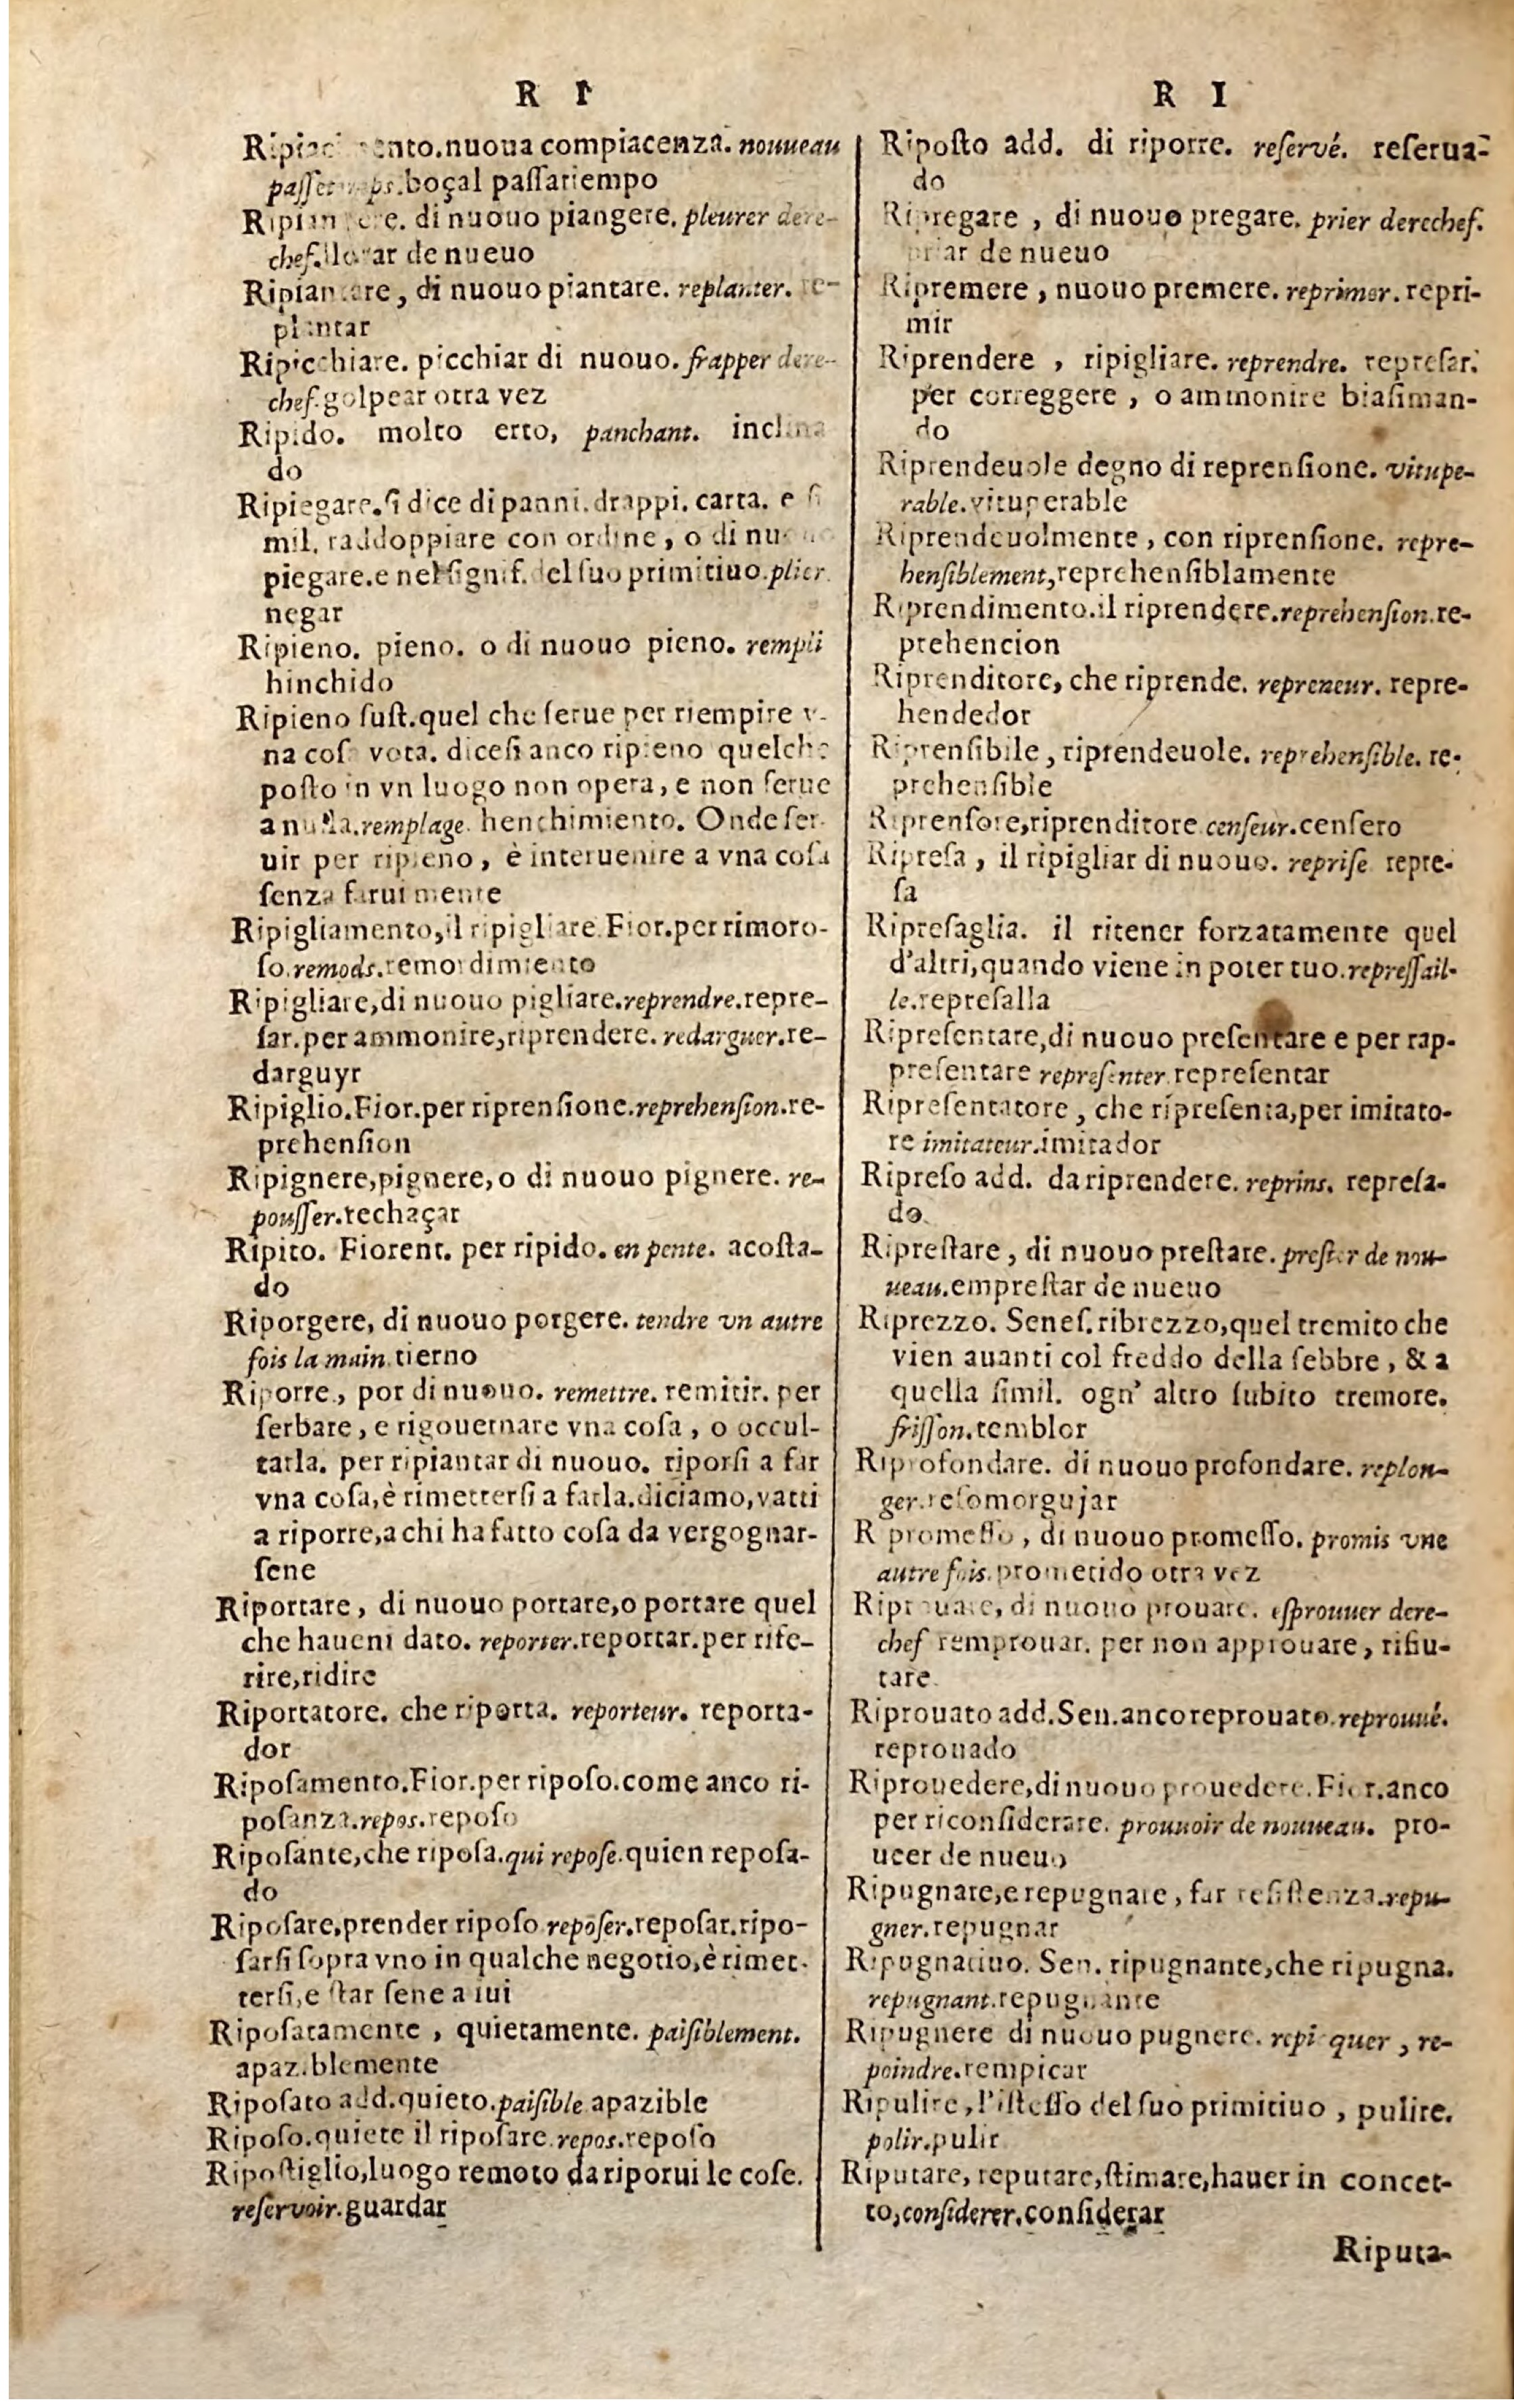 R I
Ripiacimento.nuoua compiacenza. nouueau
passetemps.boçal passatiempo
Ripiangere. di nuouo piangere. pleurer dere-
chef.llorar de nueuo
Ripiantare, di nuouo piantare. replanter. re-
plantar
Ripicchiare. picchiar di nuouo. frapper dere-
chef.golpear otra vez
Ripido. molto erto, panchant. inclina
do
Ripiegare.si dice di panni.drappi. carta. e si
mil. raddoppiare con ordine, o di nuouo
piegare.e nel signif.del suo primitiuo.plier.
negar
Ripieno. pieno. o di nuouo pieno. rempli
hinchido
Ripieno sust.quel che serue per riempire v-
na cosa vota. dicesi anco ripieno quelche
posto in vn luogo non opera, e non serue
a nulla.remplage. henchimiento. Onde ser-
uir per ripieno, è interuenire a vna cosa
senza farui niente
Ripigliamento,il ripigliare.Fior.per rimoro-
so.remods.remordimiento
Ripigliare,di nuouo pigliare.reprendre.repre-
sar.per ammonire,riprendere. redarguer.re-
darguyr
Ripiglio.Fior.per riprensione.reprehension.re-
prehension
Ripignere,pignere,o di nuouo pignere. re-
pousser.rechaçar
Ripito. Fiorent. per ripido. en pente. acosta-
do
Riporgere, di nuouo porgere. tendre vn autre
fois la main.tierno
Riporre, por di nuouo. remettre. remitir. per
serbare, e rigouernare vna cosa, o occul-
tarla. per ripiantar di nuouo. riporsi a far
vna cosa,è rimettersi a farla.diciamo,vatti
a riporre,a chi ha fatto cosa da vergognar-
sene
Riportare, di nuouo portare,o portare quel
che haueni dato. reporter.reportar.per rife-
rire,ridire
Riportatore. che riporta. reporteur. reporta-
dor
Riposamento.Fior.per riposo.come anco ri-
posanza.repos.reposo
Riposante,che riposa.qui repose.quien reposa-
do
Riposare,prender riposo.reposer.reposar.ripo-
sarsi sopra vno in qualche negotio,è rimet-
tersi,e star sene a lui
Riposatamente, quietamente. paisiblement.
apaziblemente
Riposato add.quieto.paisible apazible
Riposo.quiete il riposare.repos.reposo
Ripostiglio,luogo remoto da riporui le cose.
reservoir.guardar
R I
Riposto add. di riporre. reservé. reserua-
do
Ripregare, di nuouo pregare. prier derechef.
priar de nueuo
Ripremere, nuouo premere. reprimer. repri-
mir
Riprendere, ripigliare. reprendre. represar.
per correggere, o ammonire biasiman-
do
Riprendeuole degno di reprensione. vitupe-
rable.vituperable
Riprendeuolmente, con riprensione. repre-
hensiblement,reprehensiblamente
Riprendimento.il riprendere.reprehension.re-
prehencion
Riprenditore, che riprende. repreneur. repre-
hendedor
Riprensibile, riprendeuole. reprehensible. re-
prehensible
Riprensore,riprenditore.censeur.censero
Ripresa, il ripigliar di nuouo. reprise repre-
sa
Ripresaglia. il ritener forzatamente quel
d'altri,quando viene in poter tuo.repressail-
le.represalla
Ripresentare,di nuouo presentare e per rap-
presentare representer.representar
Ripresentatore, che ripresenta,per imitato-
re imitateur.imitador
Ripreso add. da riprendere. reprins. represa-
do.
Riprestare, di nuouo prestare.prester de nou-
ueau.emprestar de nueuo
Riprezzo. Senes.ribrezzo,quel tremito che
vien auanti col freddo della febbre, & a
quella simil. ogn' altro subito tremore.
frisson.temblor
Riprofondare. di nuouo profondare. replon-
ger.resomorgujar
Ripromesso, di nuouo promesso. promis vne
autre fois.prometido otra vez
Riprouare, di nuouo prouare. esprouuer dere-
chef remprouar. per non approuare, rifiu-
tare.
Riprouato add.Sen.anco reprouato.reprouué.
reprouado
Riprouedere,di nuouo prouedere.Fior.anco
per riconsiderare. prouuoir de nouueau. pro-
ueer de nueuo
Ripugnare,e repugnare, far resistenza.repu-
gner.repugnar
Ripugnatiuo. Sen. ripugnante,che ripugna.
repugnant.repugnante
Ripugnere di nuouo pugnere. repi quer, re-
poindre.rempicar
Ripulire,l'istesso del suo primitiuo, pulire.
polir.pulir
Riputare, reputare,stimare,hauer in concet-
to,considerer.considerar
Riputa-